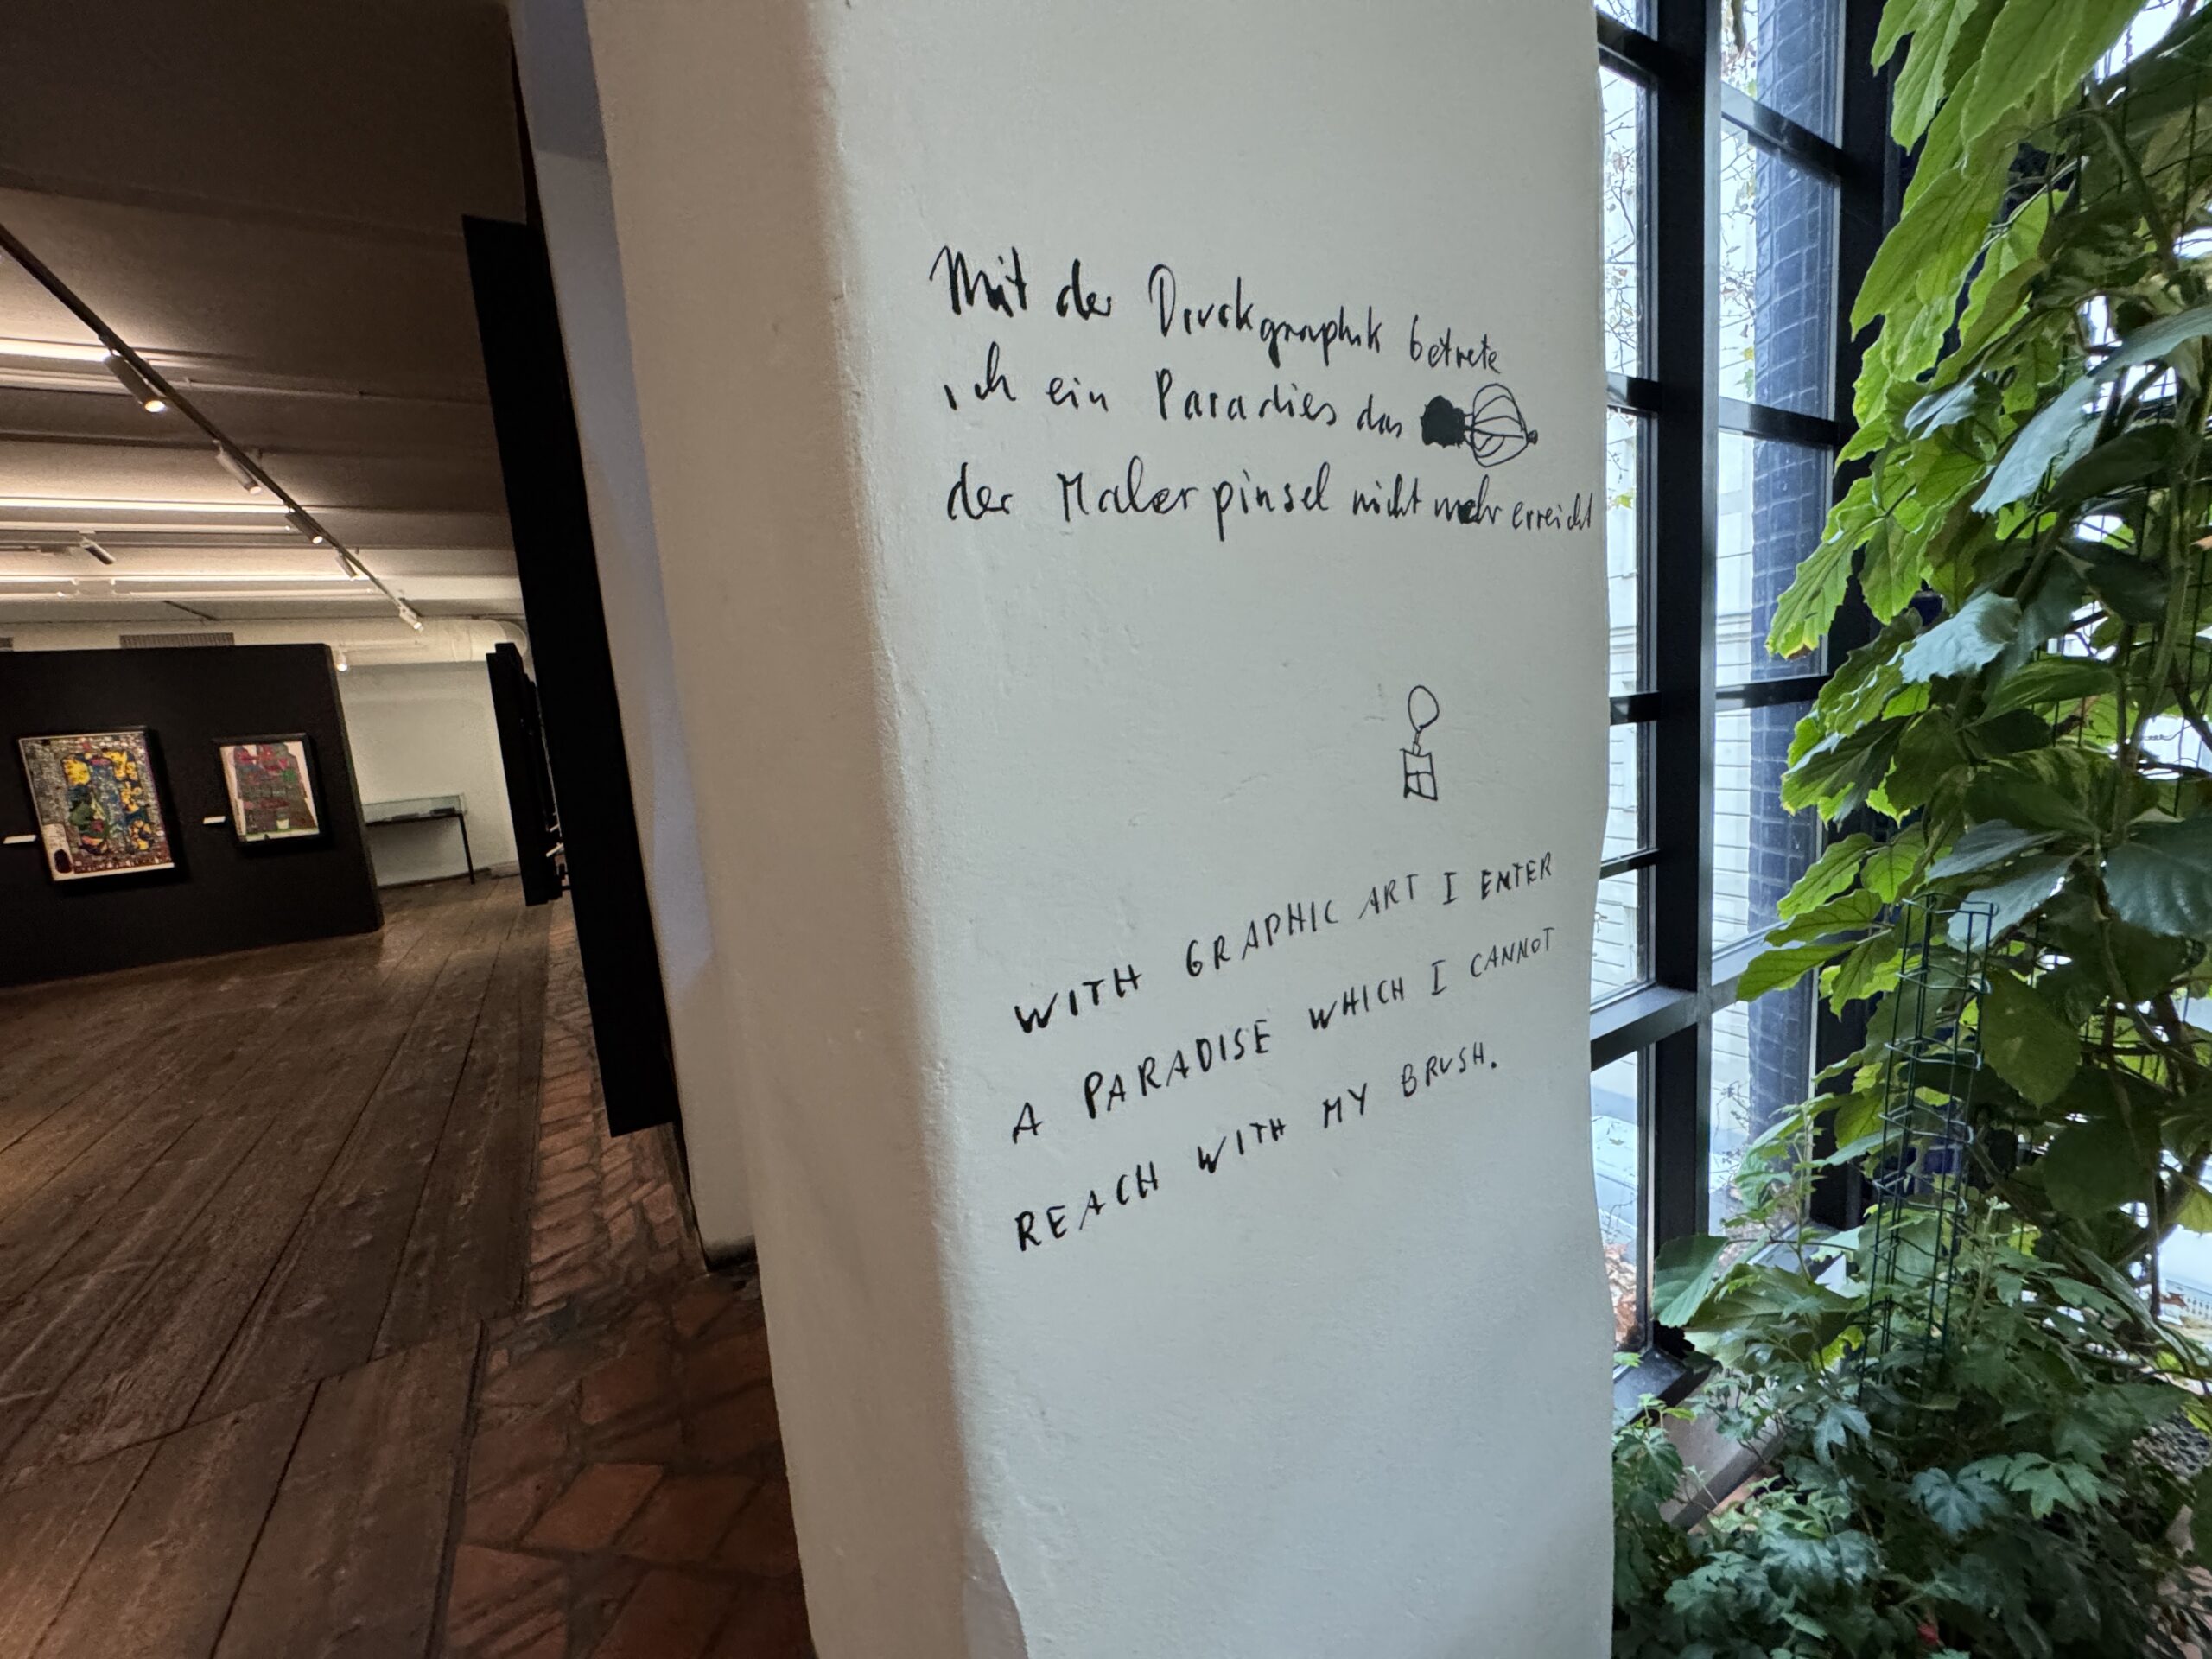 Mit der Druckgraphik betrete
ich ein Paradies das
der Malerpinsel nicht mehr erreicht
WITH GRAPHIC ART I ENTER
A PARADISE WHICH I CANNOT
REACH WITH MY BRUSH.